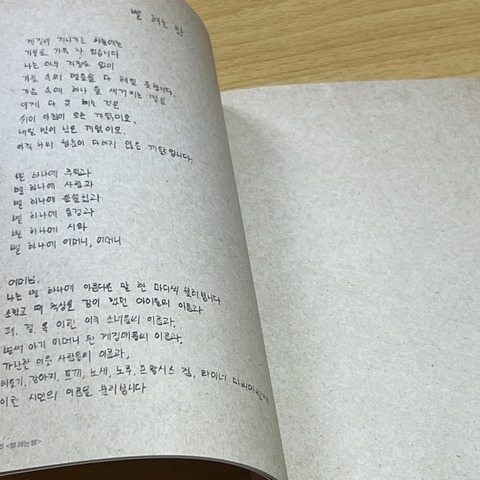 별 헤는 밤
계절이 지나가는 하늘에는
가을로 가득 차 있습니다
나는 아무 걱정도 없이
가을 속의 별들을 다 헤일 듯합니다.
가슴 속에 하나 둘 새겨지는 별을
이제 다 못 헤는 것은
쉬이 아침이 오는 까닭이요,
내일 밤이 남은 까닭이요,
아직 나의 청춘이 다하지 않은 까닭입니다.
별 하나에 추억과
별 하나에 사랑과
별 하나에 쓸쓸함과
별 하나에 동경과
별 하나에 시와
별 하나에 어머니, 어머니
어머님,
나는 별 하나에 아름다운 말 한 마디씩 불러봅니다
소학교 때 책상을 같이 했던 아이들의 이름과
패, 경, 옥 이런 이국 소녀들의 이름과,
벌써 아기 어머니 된 계집애들의 이름과,
가난한 이웃 사람들의 이름과,
비둘기, 강아지, 토끼, 노새, 노루, 프랑시스 잠, 라이너
이런 시인의 이름을 불러봅니다
<별 헤는 밤>